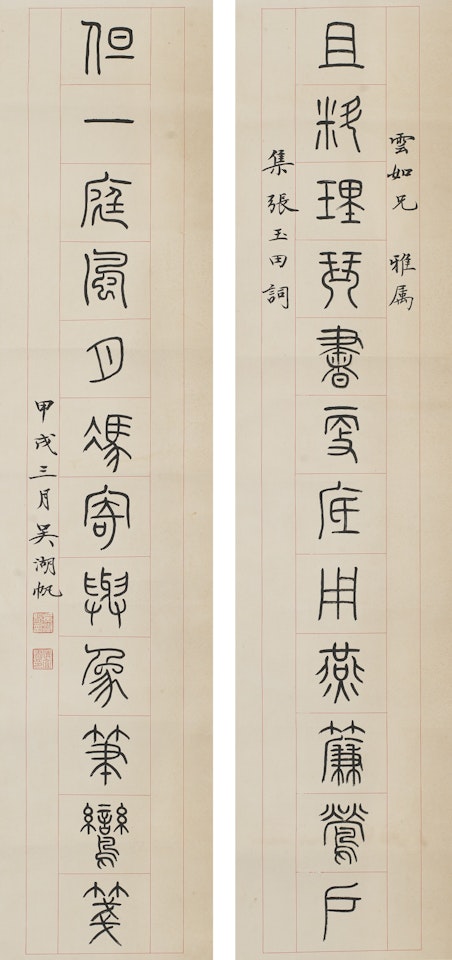 雲如兄 雅属
且料理琴書更底用燕簾鶯戶
集張玉田詞
但一庭風月馮寄與象筆鸞箋
甲戌三月吴湖帆